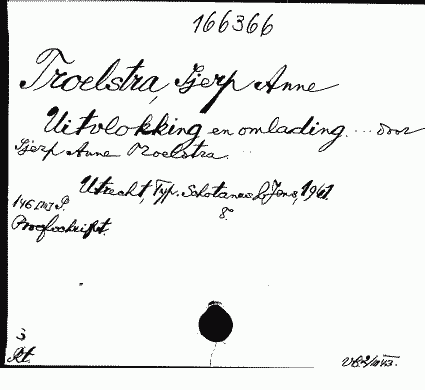 166366
Troelstra, Sjerp Anne
Uitvlokking en omlading .... door
Sjerp Anne Troelstra.
Utrecht, Typ. Schotanus & Jens, 1941.
8°.
146 P.
Proefschrift.
3
Rt.